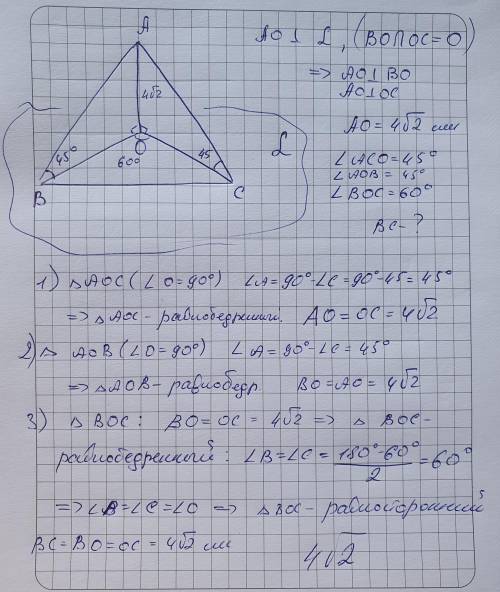 A
AO⊥ L, (BO∩OC=O)
=> AO⊥BO
AO⊥OC
4√2
AO=4√2 см
45°
O
60°
45
L
∠ACO=45°
∠AOB=45°
∠BOC=60°
B
C
BC-?
1) △AOC(∠O=90°) ∠A=90°-∠C=90°-45=45°
=> △AOC-равнобедренный. AO=OC=4√2
2) △ AOB(∠O=90°) ∠A=90°-∠C=45°
=> △AOB-равнобедр BO=AO=4√2
3) △BOC: BO=OC=4√2 => △ BOC-
равнобедренный: ∠B=∠C=180°-60°/2=60°
=> ∠B=∠C=∠O => △BOC-равносторонний
BC=BO=OC=4√2 см
4√2